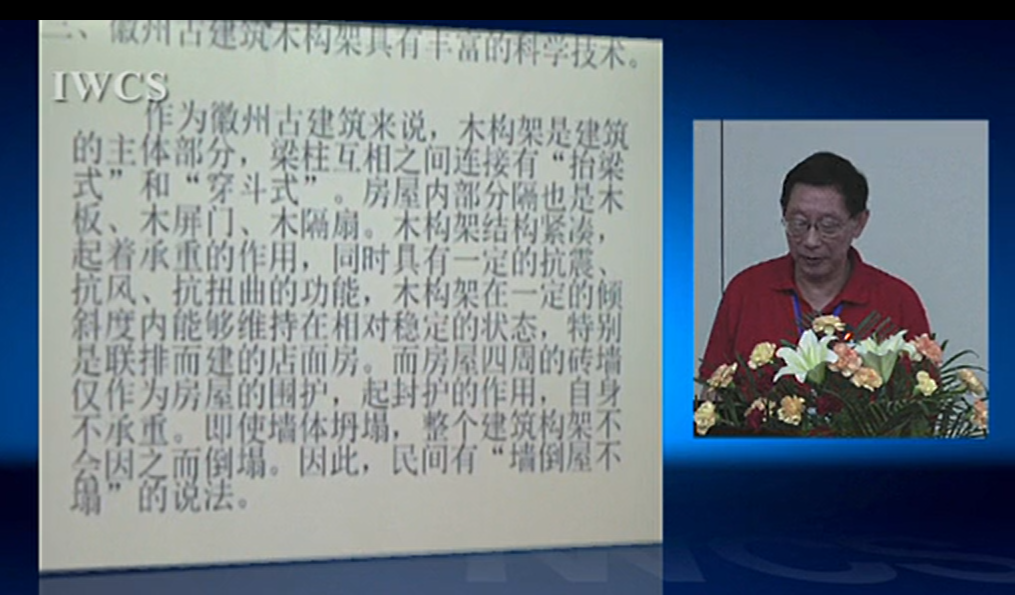 二、徽州古建筑木构架具有丰富的科学技术。
IWCS
作为徽州古建筑来说，木构架是建筑
的主体部分，梁柱互相之间连接有“抬梁
式”和“穿斗式”。房屋内部分隔也是木
板、木屏门、木隔扇。木构架结构紧凑，
起着承重的作用，同时具有一定的抗震、
抗风、抗扭曲的功能，木构架在一定的倾
斜度内能够维持在相对稳定的状态，特别
是联排而建的店面房。而房屋四周的砖墙
仅作为房屋的围护，起封护的作用，自身
不承重。即使墙体坍塌，整个建筑构架不
会因之而倒塌。因此，民间有“墙倒屋不
塌”的说法。
IWCS